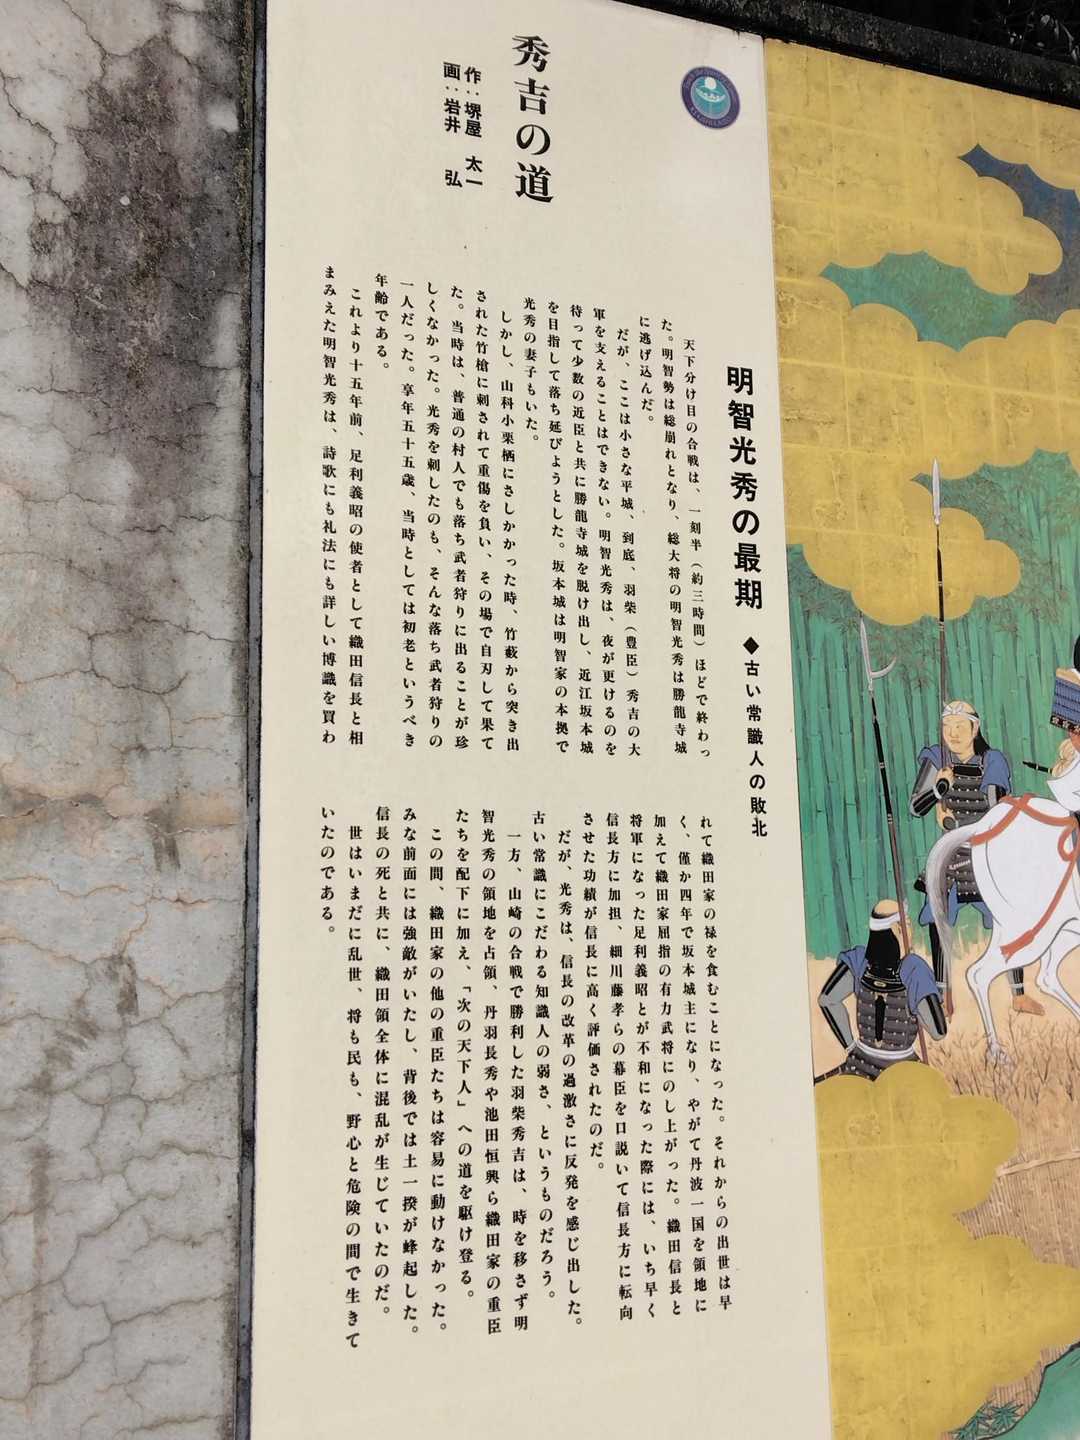 秀吉の道
作：堺屋 太一
画：岩井 弘
明智光秀の最期 ◆古い常識人の敗北
天下分け目の合戦は、一刻半（約三時間）ほどで終わっ
た。明智勢は総崩れとなり、総大将の明智光秀は勝龍寺城
に逃げ込んだ。
だが、ここは小さな平城、到底、羽柴（豊臣）秀吉の大
軍を支えることはできない。明智光秀は、夜が更けるのを
待って少数の近臣と共に勝龍寺城を脱け出し、近江坂本城
を目指して落ち延びようとした。坂本城は明智家の本拠で
光秀の妻子もいた。
しかし、山科小栗栖にさしかかった時、竹藪から突き出
された竹槍に刺されて重傷を負い、その場で自刃して果て
た。当時は、普通の村人でも落ち武者狩りに出ることが珍
しくなかった。光秀を刺したのも、そんな落ち武者狩りの
一人だった。享年五十五歳、当時としては初老というべき
年齢である。
これより十五年前、足利義昭の使者として織田信長と相
まみえた明智光秀は、詩歌にも礼法にも詳しい博識を買わ
れて織田家の禄を食むことになった。それからの出世は早
く、僅か四年で坂本城主になり、やがて丹波一国を領地に
加えて織田家屈指の有力武将にのし上がった。織田信長と
将軍になった足利義昭とが不和になった際には、いち早く
信長方に加担、細川藤孝らの幕臣を口説いて信長方に転向
させた功績が信長に高く評価されたのだ。
だが、光秀は、信長の改革の過激さに反発を感じ出した。
古い常識にこだわる知識人の弱さ、というものだろう。
一方、山崎の合戦で勝利した羽柴秀吉は、時を移さず明
智光秀の領地を占領、丹羽長秀や池田恒興ら織田家の重臣
たちを配下に加え、「次の天下人」への道を駆け登る。
この間、織田家の他の重臣たちは容易に動けなかった。
みな前面には強敵がいたし、背後では土一揆が蜂起した。
信長の死と共に、織田領全体に混乱が生じていたのだ。
世はいまだに乱世、将も民も、野心と危険の間で生きて
いたのである。